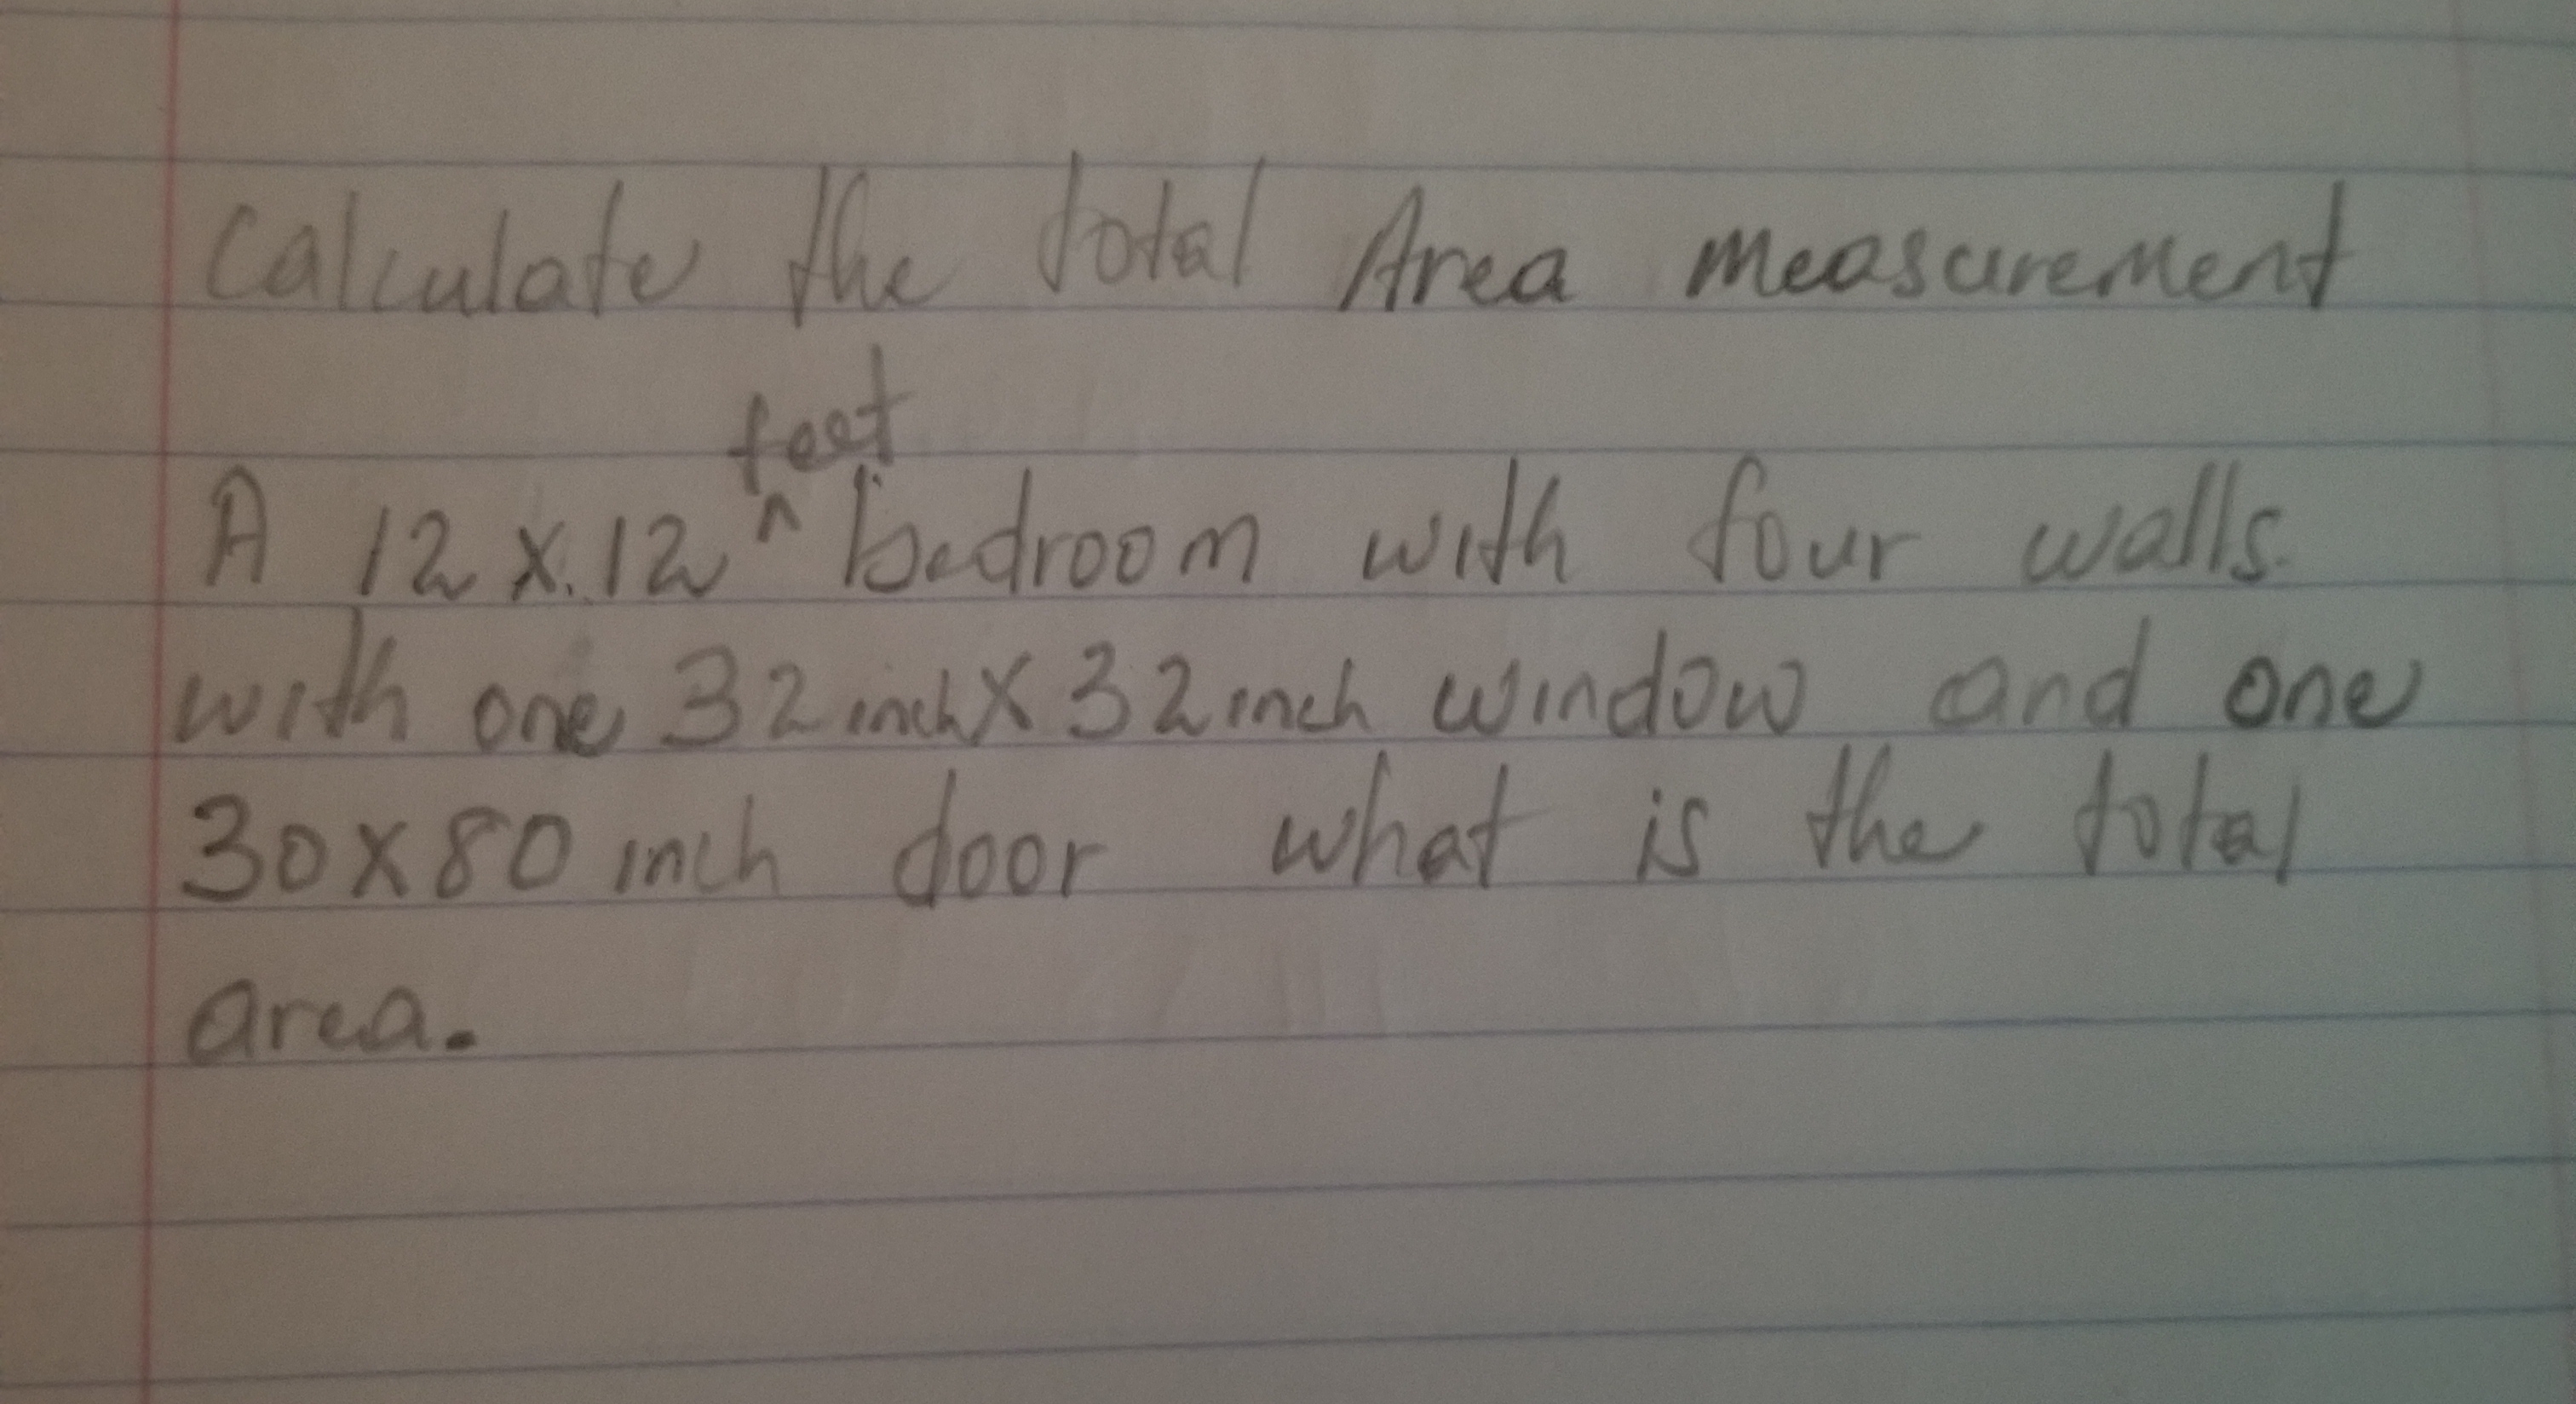 Calculate the total Area measurement
feet
A 12 x. 12 ^ bedroom with four walls.
with one 32 inch X 32 inch window and one
30 x 80 inch door what is the total
area.